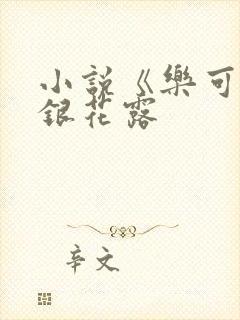 小說《樂可
銀花露
辛文